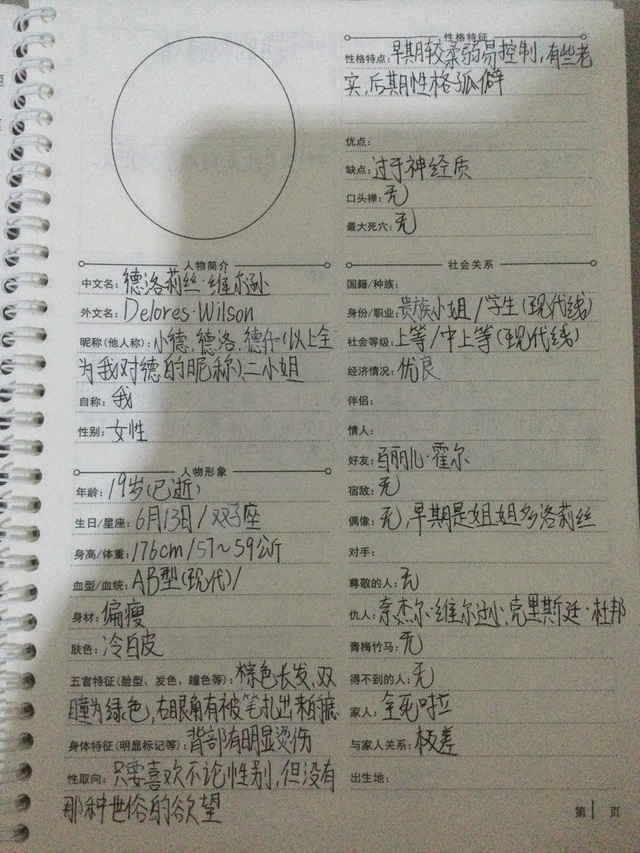 人物简介
中文名：德洛莉丝·维尔逊
外文名：Delores·Wilson
昵称(他人称)：小德、德洛、德什(以上全
为我对德的昵称)、二小姐
自称：我
性别：女性
人物形象
年龄：19岁(已逝)
生日/星座：6月13日/双子座
身高/体重：176cm/57~59公斤
血型/血统：AB型(现代)/
身材：偏瘦
肤色：冷白皮
五官特征(脸型、发色、瞳色等)：棕色长发、双
瞳为绿色，右眼角有被笔扎出来的痕
身体特征(明显标记等)：背部有明显烫伤
性取向：只要喜欢不论性别，但没有
那种世俗的欲望
性格特征
性格特点：早期较柔弱易控制，有些老
实，后期性格孤僻
优点：
缺点：过于神经质
口头禅：无
最大死穴：无
社会关系
国籍/种族：
身份/职业：贵族小姐/学生(现代线)
社会等级：上等/中上等(现代线)
经济情况：优良
伴侣：
情人：
好友：丽儿·霍尔
宿敌：无
偶像：无，早期是姐姐多洛莉丝
对手：
尊敬的人：无
仇人：奈杰尔·维尔逊、克里斯廷·杜邦
青梅竹马：无
得不到的人：无
家人：全死啦
与家人关系：极差
出生地：
第1页